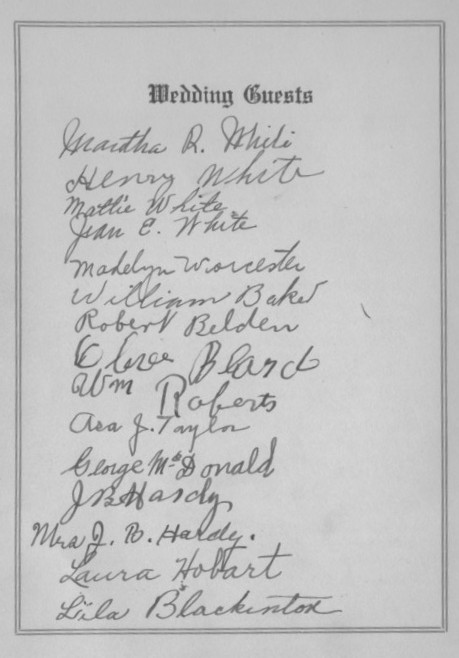 Wedding Guests
Martha R. White
Henry White
Mattie White
Jean E. White
Madelyn Worcester
William Baker
Robert Belden
Olive Bland
Wm Roberts
Asa J. Taylor
George McDonald
J B Hardy
Mrs J. B. Hardy.
Laura Hobart
Lila Blackinton